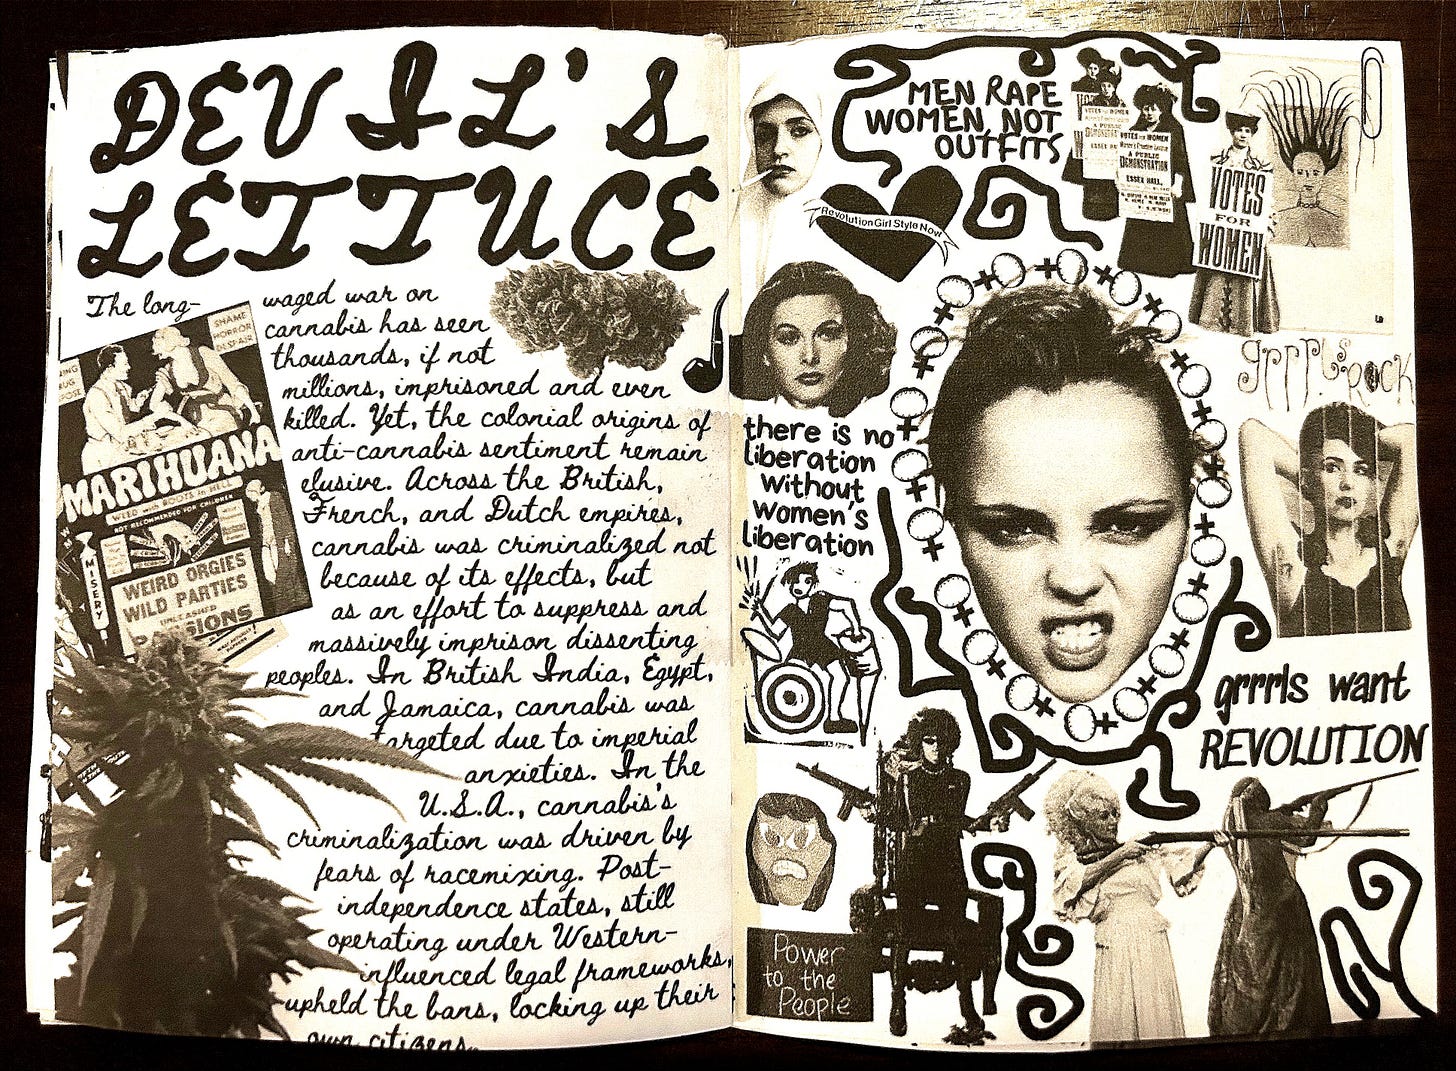 DEVIL'S
LETTUCE
The long-
waged war on
cannabis has seen
thousands, if not
millions, imprisoned and even
killed. Yet, the colonial origins of
anti-cannabis sentiment remain
elusive. Across the British,
French, and Dutch empires,
cannabis was criminalized not
because of its effects, but
as an effort to suppress and
massively imprison dissenting
peoples. In British India, Egypt,
and Jamaica, cannabis was
targeted due to imperial
anxieties. In the
U.S.A., cannabis's
criminalization was driven by
fears of racemixing. Post-
independence states, still
operating under Western-
influenced legal frameworks,
upheld the bans, locking up their
own citizens.
SHAME
HORROR
DESPAIR
MARIHUANA
WEED with ROOTS in HELL
NOT RECOMMENDED FOR CHILDREN
MISERY
WEIRD ORGIES
WILD PARTIES
UNLEASHED
PASSIONS
MEN RAPE
WOMEN, NOT
OUTFITS
Revolution Girl Style Now!
VOTES FOR WOMEN
A PUBLIC
DEMONSTRATION
ESSEX HALL
VOTES
FOR
WOMEN
grrrls rock
there is no
liberation
without
women's
liberation
grrrls want
REVOLUTION
Power
to the
People